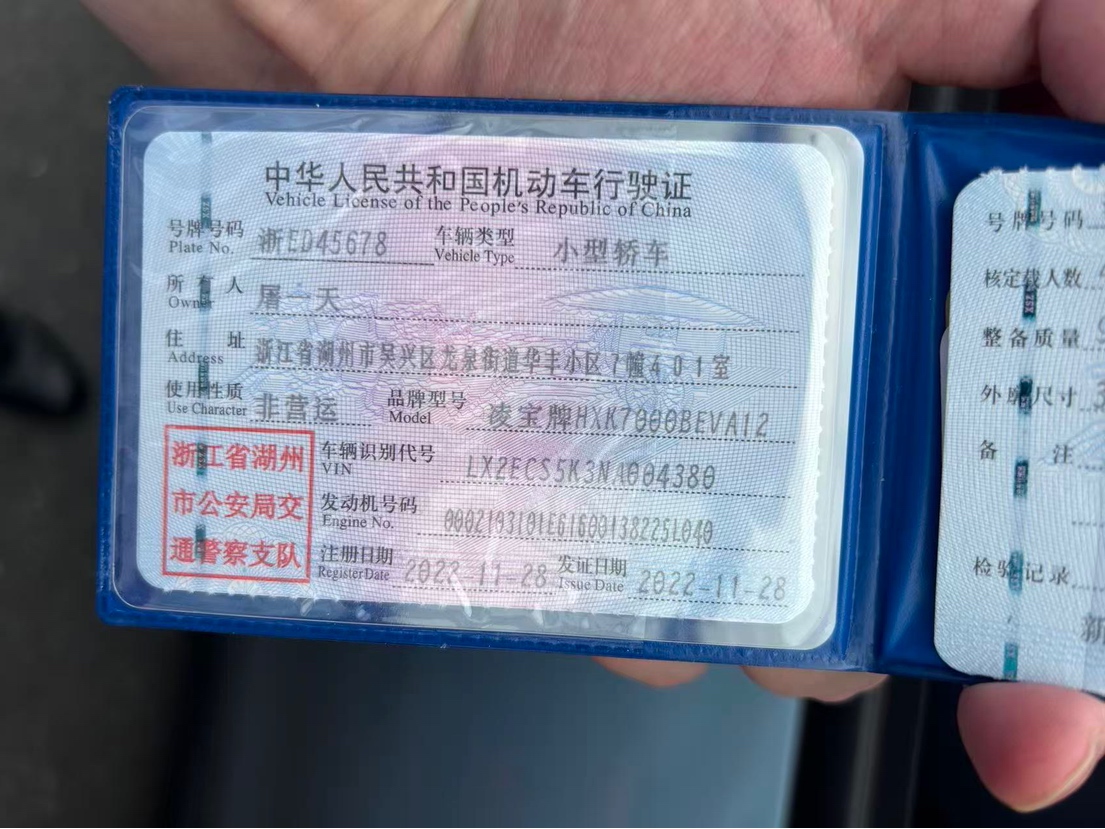 中华人民共和国机动车行驶证
Vehicle License of the People's Republic of China
号牌号码 浙ED45678 车辆类型 小型轿车
Plate No. Vehicle Type
所有人 屠一天
Owner
住址 浙江省湖州市吴兴区龙泉街道华丰小区7幢401室
Address
使用性质 非营运 品牌型号 凌宝牌HXK7000BEVA12
Use Character Model
浙江省湖州
市公安局交
通警察支队
车辆识别代号 LX2ECS5K3NA004380
VIN
发动机号码
Engine No.
注册日期 2022-11-28 发证日期 2022-11-28
Register Date Issue Date
号牌号码
核定载人数
整备质量
外廓尺寸
备注
检验记录